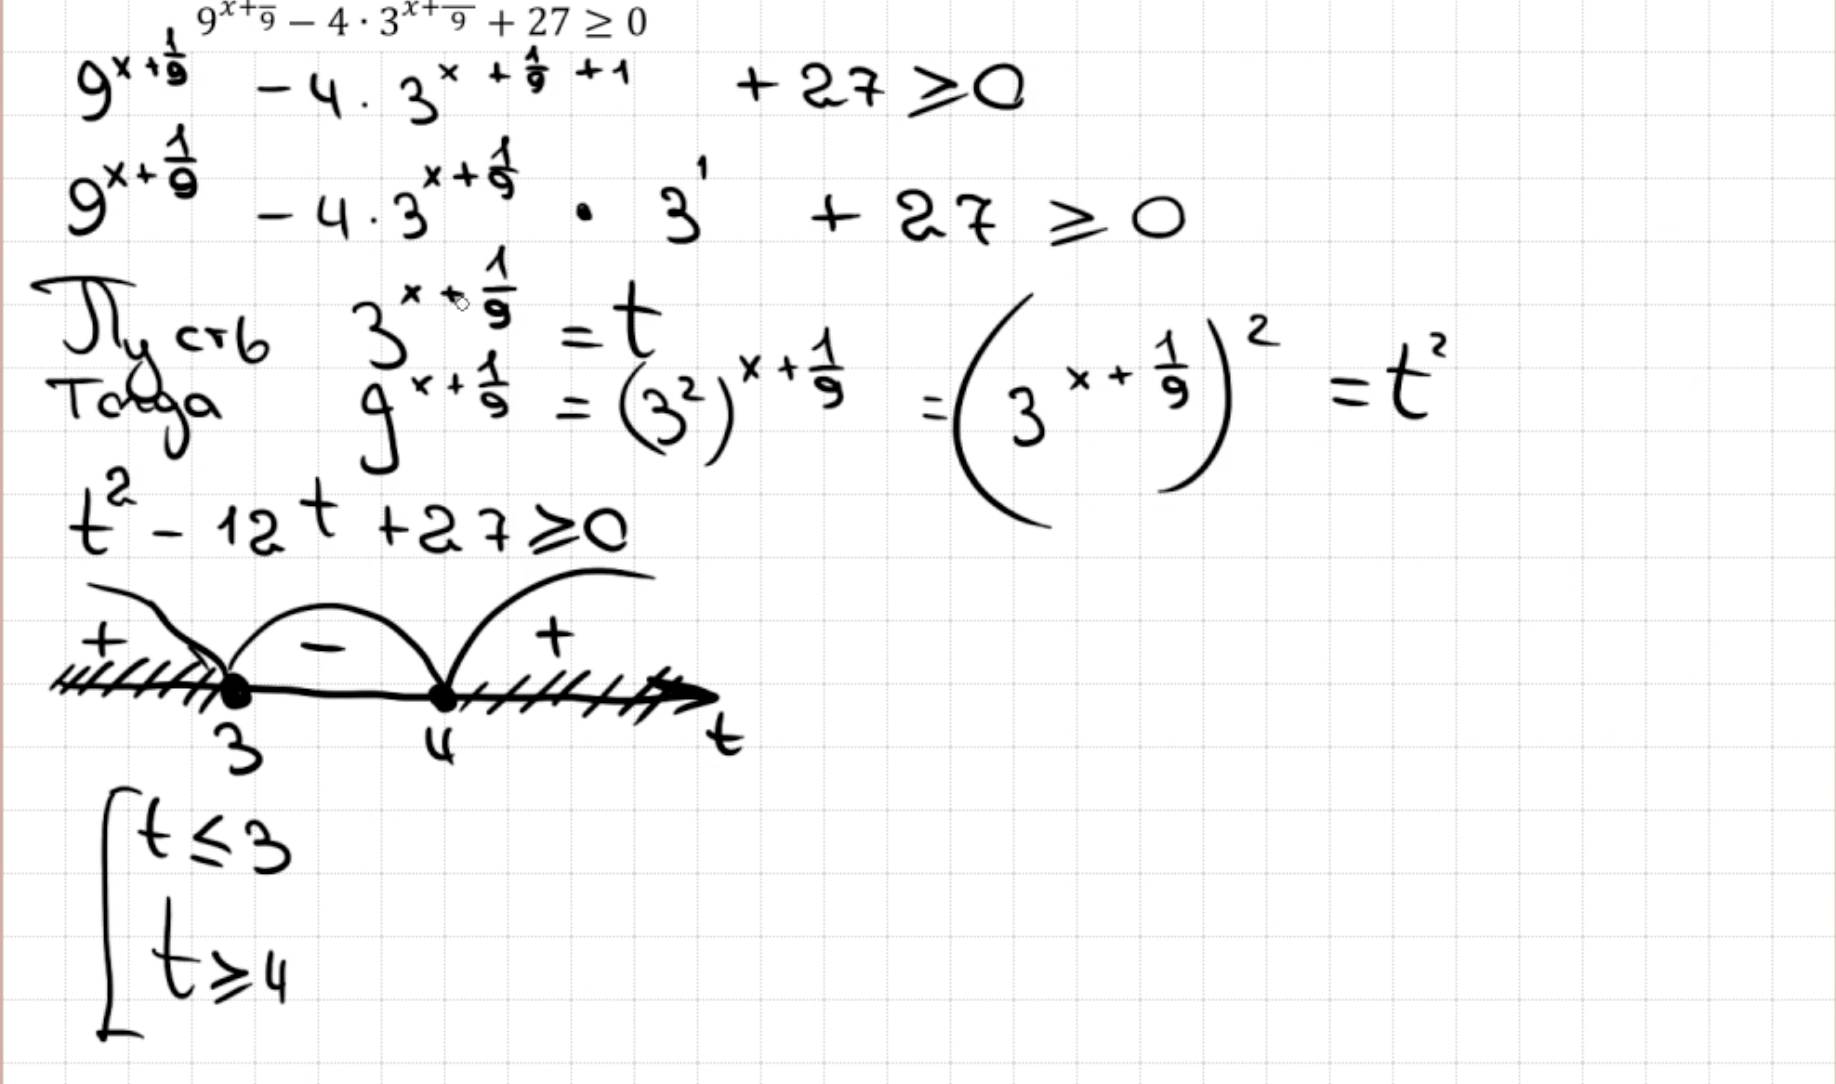 9^{x+\frac{}{9}} − 4 · 3^{x+\frac{}{9}} + 27 ≥ 0
9^{x+\frac{1}{9}} − 4 · 3^{x+\frac{1}{9}+1} + 27 ≥ 0
9^{x+\frac{1}{9}} − 4 · 3^{x+\frac{1}{9}} · 3^1 + 27 ≥ 0
Пусть 3^{x+\frac{1}{9}} = t
Тогда 9^{x+\frac{1}{9}} = (3^2)^{x+\frac{1}{9}} = (3^{x+\frac{1}{9}})^2 = t^2
t^2 − 12t + 27 ≥ 0
+ − +
3 4 t
[ t ≤ 3
t ≥ 4